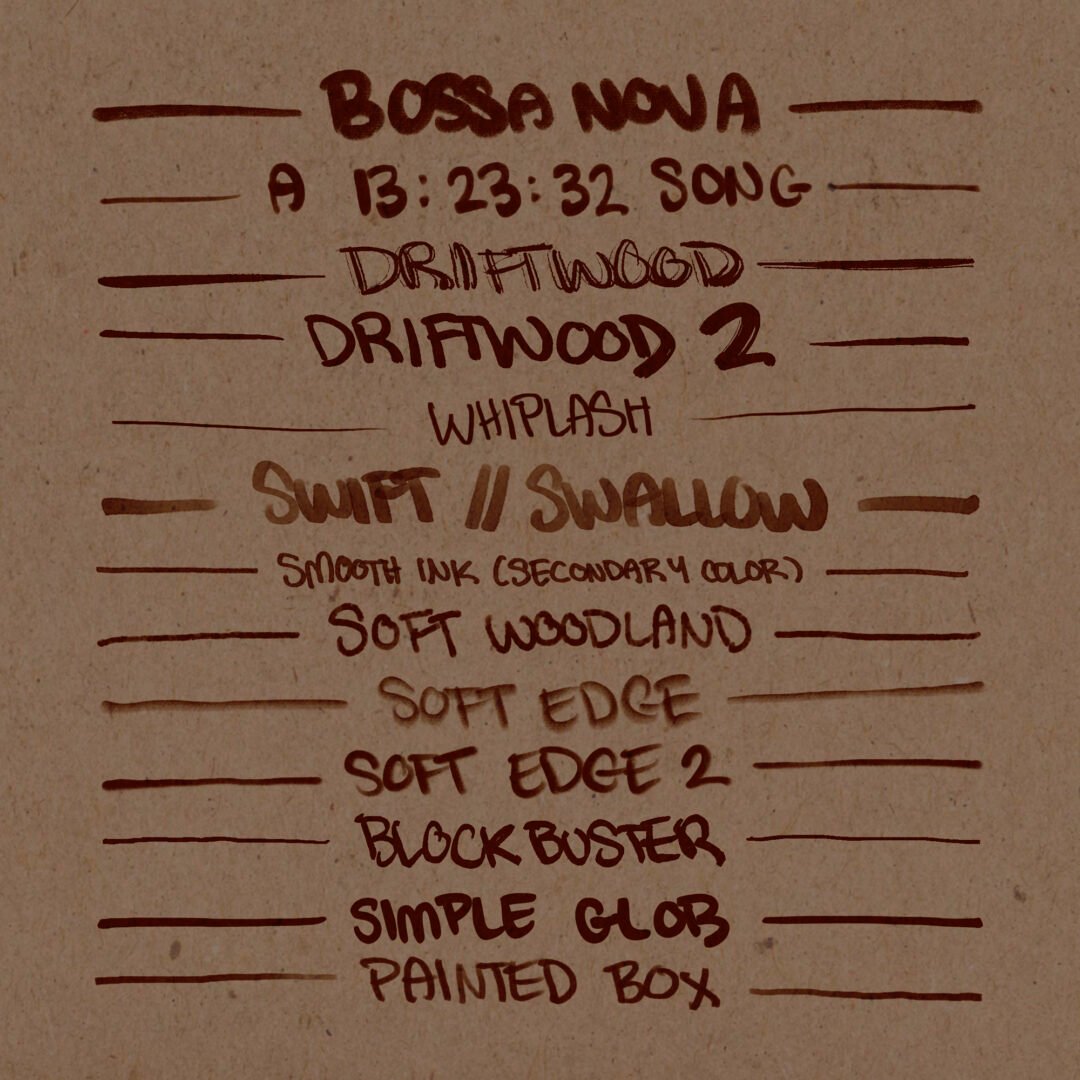 BOSSA NOVA
A 13:23:32 SONG
DRIFTWOOD
DRIFTWOOD 2
WHIPLASH
SWIFT // SWALLOW
SMOOTH INK (SECONDARY COLOR)
SOFT WOODLAND
SOFT EDGE
SOFT EDGE 2
BLOCKBUSTER
SIMPLE GLOB
PAINTED BOX